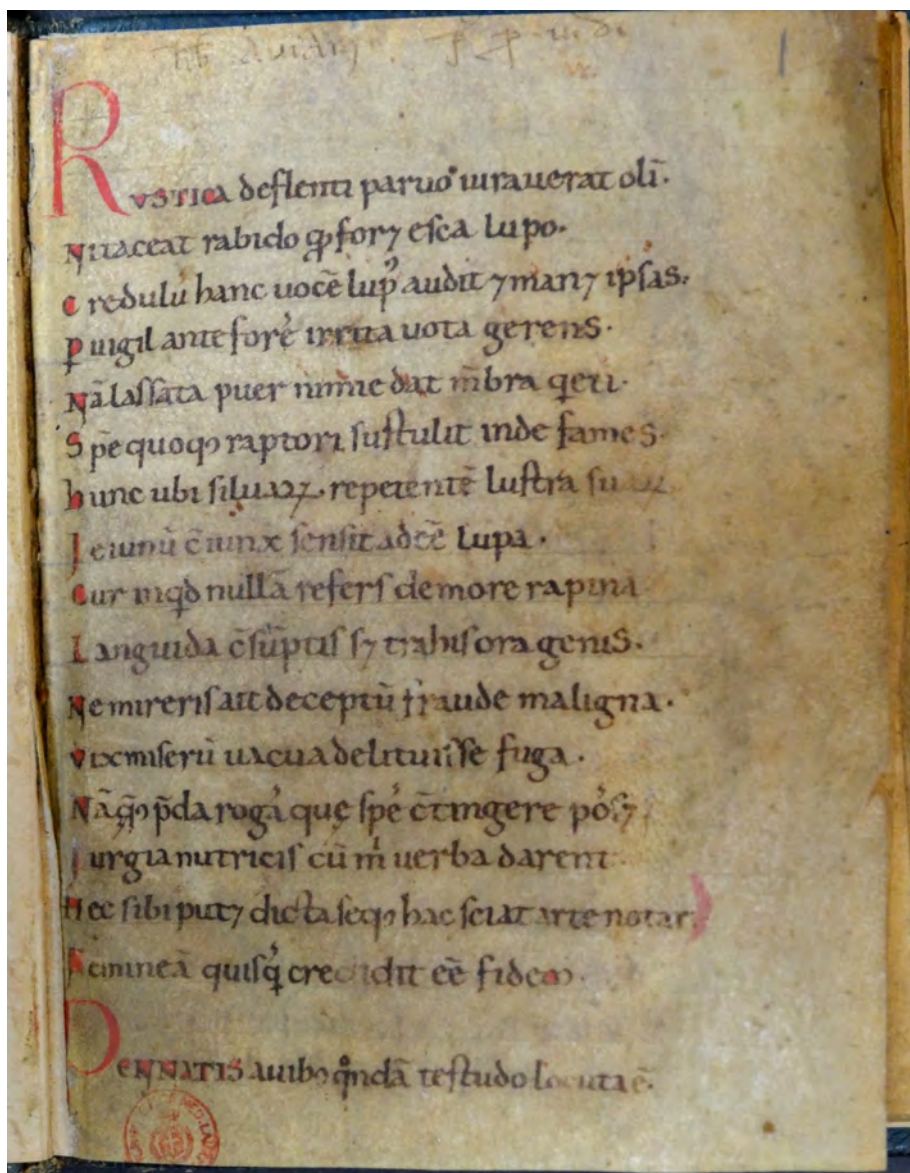 RVSTICA deflenti paruo iurauerat olī.
Ni taceat rabido qđ for⁊ esca lupo.
Credulꝰ hanc uocē lupꝰ audit ⁊ man⁊ ipsas.
Puigil ante fores irrita uota gerens.
Nā lassata puer nimie dat mēbra quieti.
Spē quoqꝫ raptori sustulit inde fames.
hunc ubi siluaꝝ repetentē lustra suaꝝ
Ieiunū cōiunx sensit adeē lupa.
Cur inqđ nullā refers de more rapinā
Languida cōsūptis s⁊ trahis ora genis.
Ne mireris ait deceptū fraude maligna.
Vix miserū uacua delituisse fuga.
Nā qꝫ p̄da rogas que spes cōtingere pos⁊
Iurgia nutricis cū m̄ uerba darent
Hec sibi put⁊ dicta seqꝫ hac sciat arte notari
Femineā quisqͥs credidit eē fidem.
PENNATIS auibꝫ quondā testudo locuta ē.